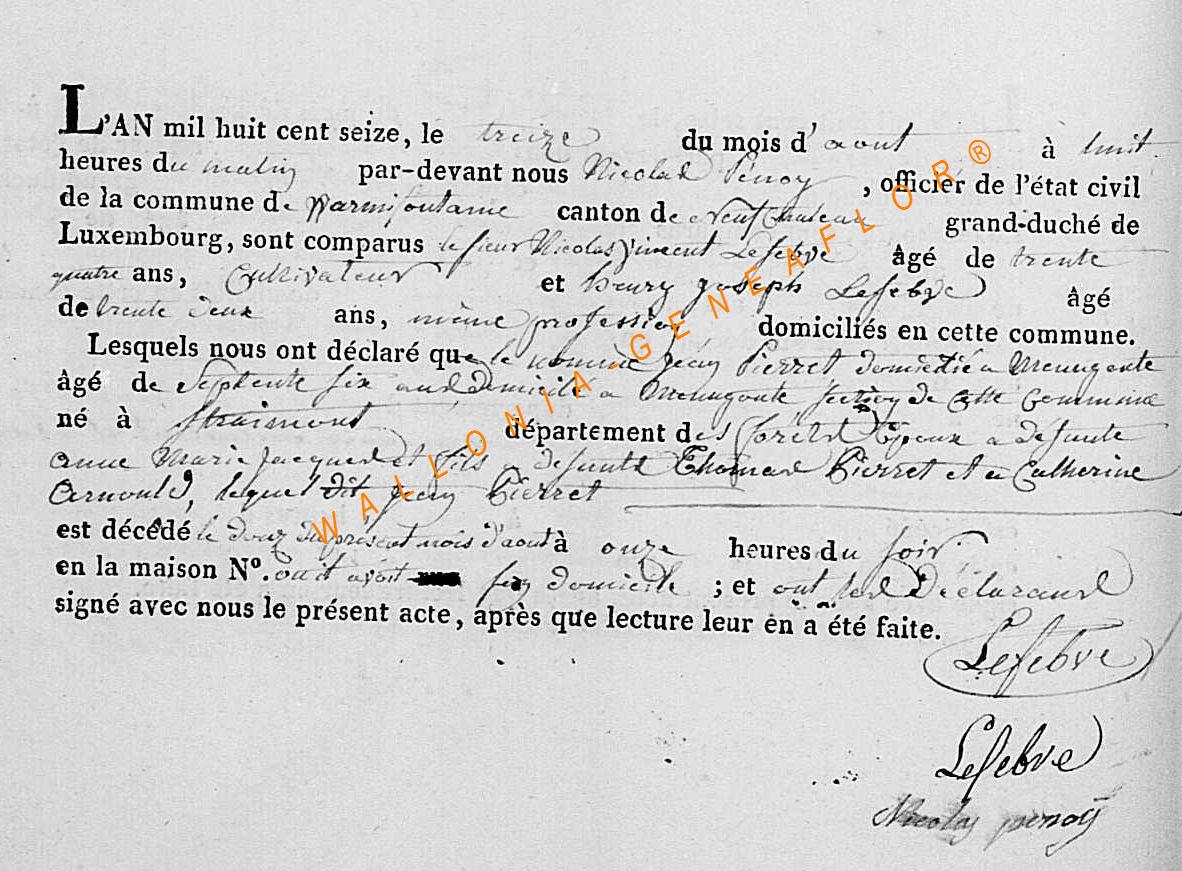 L'AN mil huit cent seize, le treize du mois d'aout à huit
heures du matin par-devant nous Nicolas Pénoy, officier de l'état civil
de la commune de Warmifontaine canton de Neufchateau grand-duché de
Luxembourg, sont comparus le sieur Nicolas Vincent Lefebve âgé de trente
quatre ans, Cultivateur et henry joseph Lefebve âgé
de trente deux ans, même profession domiciliés en cette commune.
Lesquels nous ont déclaré que le nommé jean Pierret domicilié a Menugoute
âgé de Septente six ans domicilié a Menugoute section de cette commune
né à Straimont département des forêts Epoux a defunte
anne Marie jacques et fils defunts Thomas Pierret et a Catherine
Arnould, lequel dit jean Pierret
est décédé le douze du présent mois d'aout à onze heures du soir
en la maison N°. ou il avoit son domicile ; et ont les Déclarans
signé avec nous le présent acte, après que lecture leur en a été faite.
Lefebve
Lefebve
Nicolas penoÿ
WALLONIA GENEAFLOR®